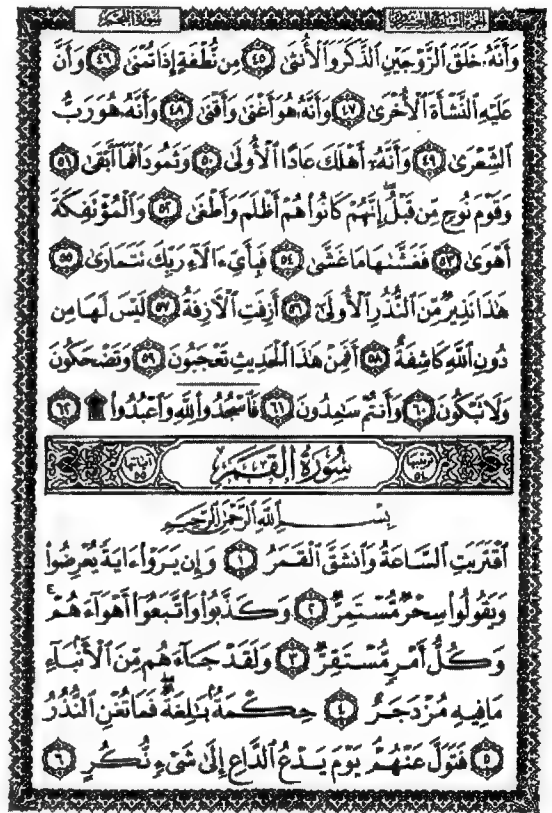 سُورَةُ النَّجْمِ الجُزْءُ السَّابِعُ وَالعِشْرُونَ
وَأَنَّهُۥ خَلَقَ ٱلزَّوۡجَيۡنِ ٱلذَّكَرَ وَٱلۡأُنثَىٰ ٤٥ مِن نُّطۡفَةٍ إِذَا تُمۡنَىٰ ٤٦ وَأَنَّ
عَلَيۡهِ ٱلنَّشۡأَةَ ٱلۡأُخۡرَىٰ ٤٧ وَأَنَّهُۥ هُوَ أَغۡنَىٰ وَأَقۡنَىٰ ٤٨ وَأَنَّهُۥ هُوَ رَبُّ
ٱلشِّعۡرَىٰ ٤٩ وَأَنَّهُۥٓ أَهۡلَكَ عَادًا ٱلۡأُولَىٰ ٥٠ وَثَمُودَاْ فَمَآ أَبۡقَىٰ ٥١
وَقَوۡمَ نُوحٖ مِّن قَبۡلُۖ إِنَّهُمۡ كَانُواْ هُمۡ أَظۡلَمَ وَأَطۡغَىٰ ٥٢ وَٱلۡمُؤۡتَفِكَةَ
أَهۡوَىٰ ٥٣ فَغَشَّىٰهَا مَا غَشَّىٰ ٥٤ فَبِأَيِّ ءَالَآءِ رَبِّكَ تَتَمَارَىٰ ٥٥
هَٰذَا نَذِيرٞ مِّنَ ٱلنُّذُرِ ٱلۡأُولَىٰٓ ٥٦ أَزِفَتِ ٱلۡأٓزِفَةُ ٥٧ لَيۡسَ لَهَا مِن
دُونِ ٱللَّهِ كَاشِفَةٌ ٥٨ أَفَمِنۡ هَٰذَا ٱلۡحَدِيثِ تَعۡجَبُونَ ٥٩ وَتَضۡحَكُونَ
وَلَا تَبۡكُونَ ٦٠ وَأَنتُمۡ سَٰمِدُونَ ٦١ فَٱسۡجُدُواْۤ لِلَّهِ وَٱعۡبُدُواْ ۩ ٦٢
ترتيبها ٥٤ سُورَةُ القَمَرِ آياتها ٥٥
بِسۡمِ ٱللَّهِ ٱلرَّحۡمَٰنِ ٱلرَّحِيمِ
ٱقۡتَرَبَتِ ٱلسَّاعَةُ وَٱنشَقَّ ٱلۡقَمَرُ ١ وَإِن يَرَوۡاْ ءَايَةٗ يُعۡرِضُواْ
وَيَقُولُواْ سِحۡرٞ مُّسۡتَمِرّٞ ٢ وَكَذَّبُواْ وَٱتَّبَعُوٓاْ أَهۡوَآءَهُمۡۚ
وَكُلُّ أَمۡرٖ مُّسۡتَقِرّٞ ٣ وَلَقَدۡ جَآءَهُم مِّنَ ٱلۡأَنۢبَآءِ
مَا فِيهِ مُزۡدَجَرٌ ٤ حِكۡمَةُۢ بَٰلِغَةٞۖ فَمَا تُغۡنِ ٱلنُّذُرُ
٥ فَتَوَلَّ عَنۡهُمۡۘ يَوۡمَ يَدۡعُ ٱلدَّاعِ إِلَىٰ شَيۡءٖ نُّكُرٍ ٦